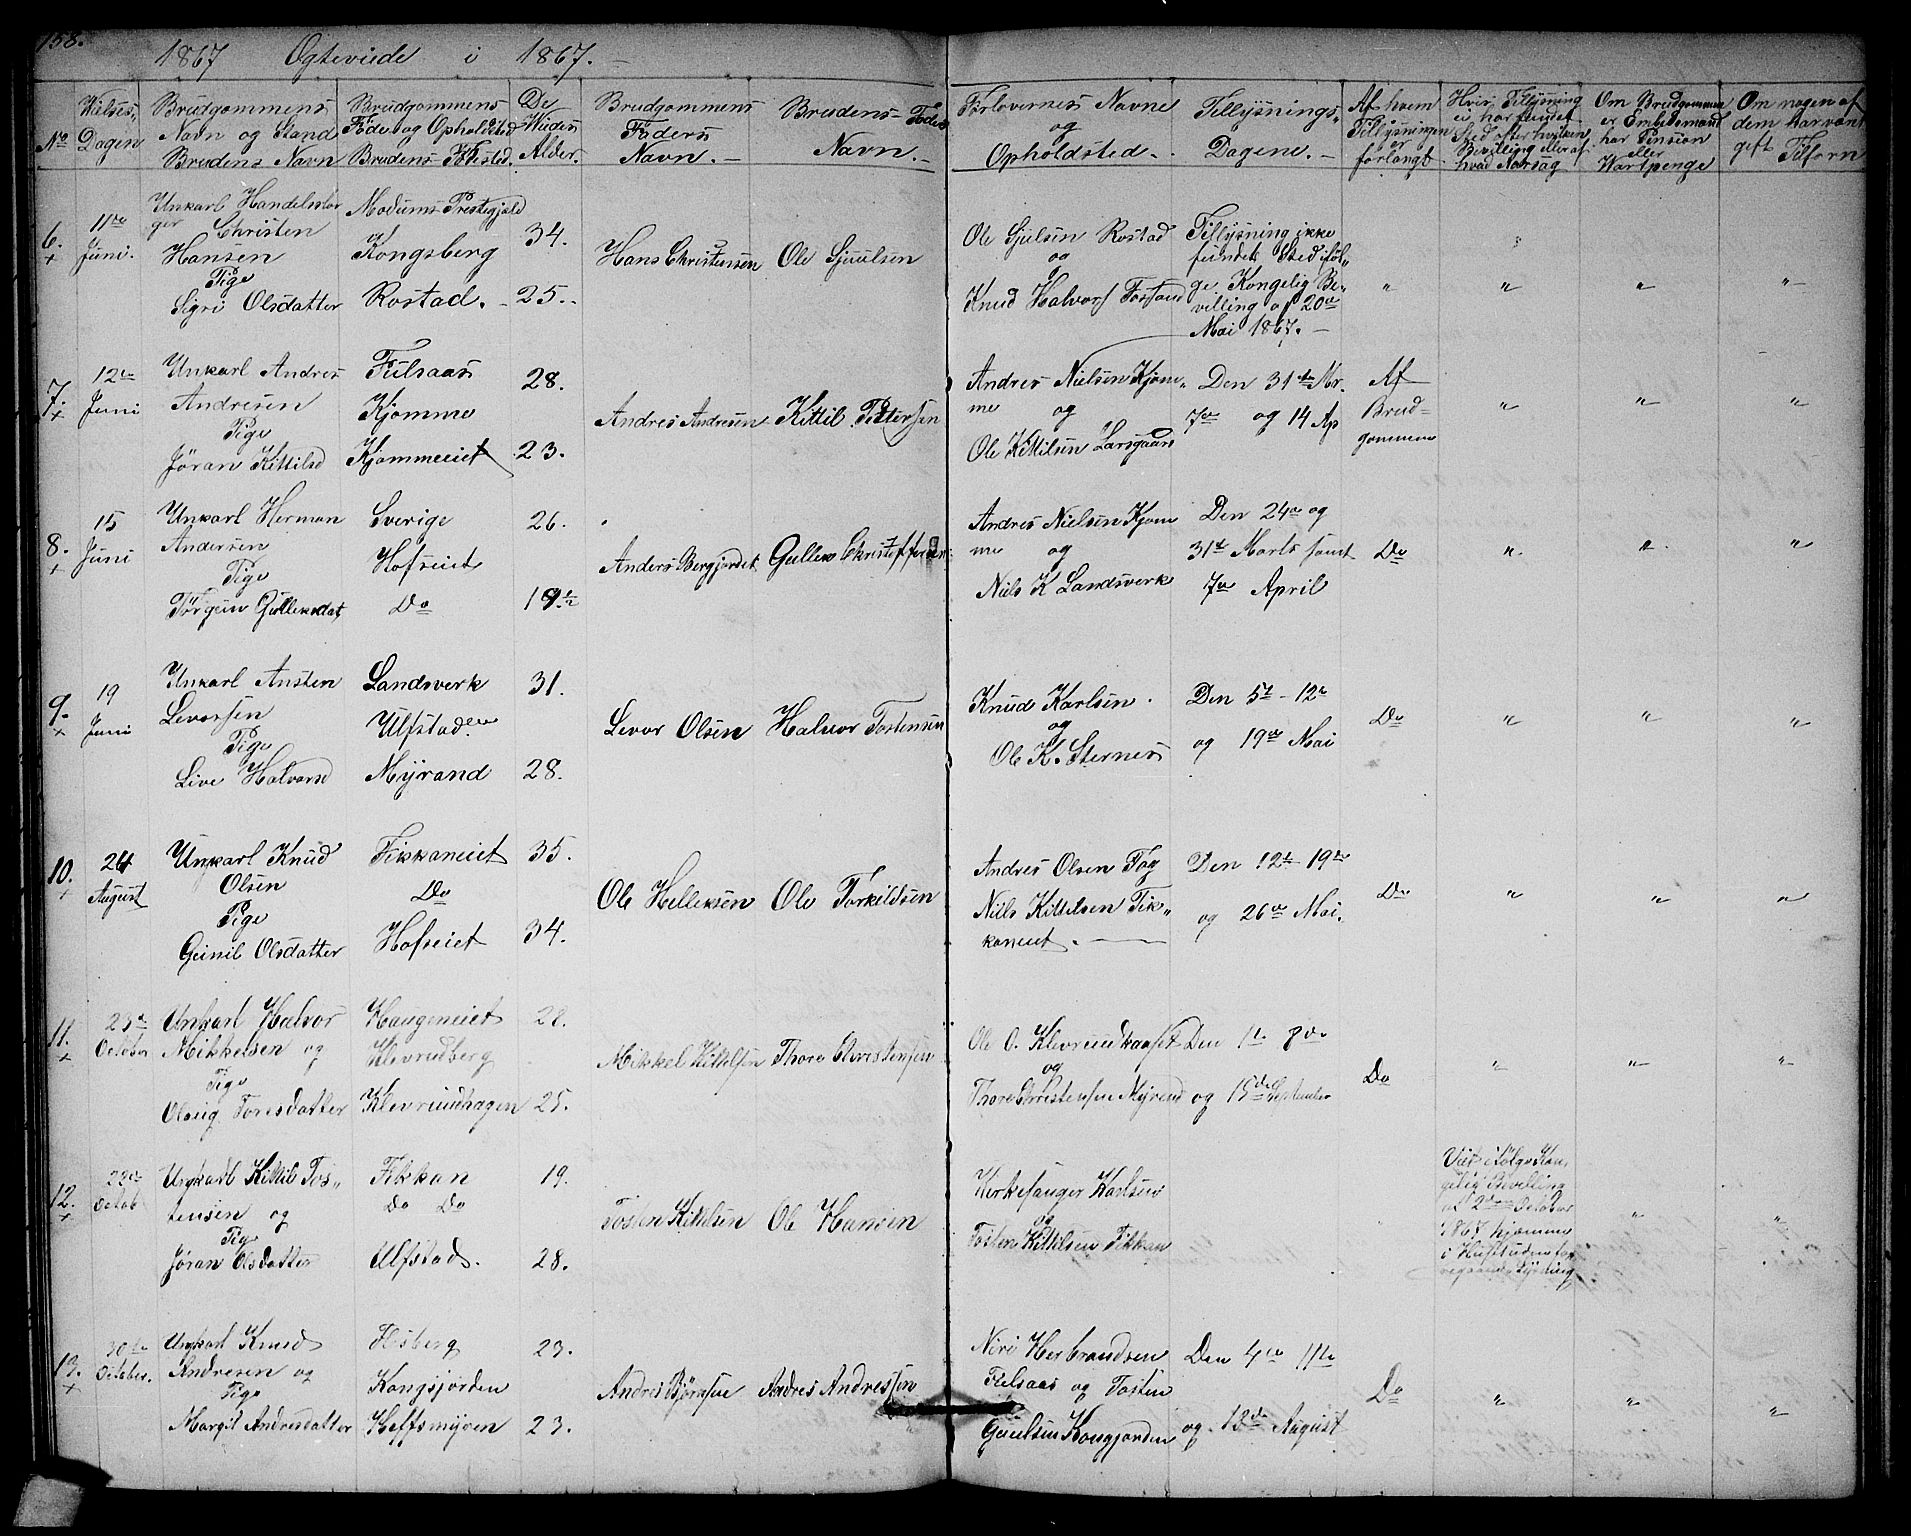 158.
1867 Ogteviede i 1867. –
No
Vielses„ Dagen
Brudgommens Navn og Stand Brudens Navn
Brudgommens Føde og Opholdsted Brudens Fødested.
De Viedes Alder.
Brudgommens Faders Navn. –
Brudens Faders Navn. –
Forlovernes Navne og Opholdsted. –
Tillysnings„ Dagene. –
Af hvem Tillysningen er forlangt
Hvis Tillysning ei har fundet Sted efter hvilken Bevilling eller af hvad Aarsag
Om Brudgommen er Embedsmand har Pension eller Vartpenge
Om nogen af dem har vært gift Tilforn
6. 11te Juni.
Unkarl Handelsbor
ger Christen
Hansen
Pige
Sigri Olsdatter
Modums Prestegjeld
Kongsberg
Rostad. –
34.
25. –
Hans Christensen
Ole Sjuulsen
Ole Sjulsen Rostad
og
Knud Halvors Fossan
Tillysning ikke
fundet Sted iføl„
ge Kongelig Be„
villing af 20de
Mai 1867. –
" " " "
7. 12te Juni
Unkarl Andres
Andresen
Pige
Jøran Kittilsd
Fulsaas
Kjomme
Kjommeeiet
28.
23.
Andres Andresen
Kittil Pettersen
Andres Nielsen Kjom„
me og
Ole Kittilsen Larsgaard
Den 31te Mr.
7de og 14 Ap
Af
Brud=
gommen
" " "
8. 15 Juni
Unkarl Herman
Andersen
Pige
Torgun Gulleksdat
Sverige
Hofseiet
Do
26.
19 1/2
Anders Bergjordet
Gullek Christoffersen
Andres Nielsen Kjom
me og
Niels K Landsverk
Den 24de og
31te Marts samt
7de April
Do " " "
9. 19 Juni
Unkarl Ansten
Levorsen
Pige
Live Halvorsd
Landsverk
Ulfstad
Myrand
31.
28.
Levor Olsen
Halvor Tostensen
Knud Karlsen.
og
Ole K. Sternes
Den 5te - 12te
og 19de Mai
Do " " "
10. 24 August
Unkarl Knud
Olsen
Pige
Gunil Olsdatter
Fikkaneiet
Do
Hofseiet
35.
34.
Ole Helleksen
Ole Torkildsen
Andres Olsen Tog
Niels Kittelsen Fik„
kaneiet. –
Den 12te 19de
og 26de Mai.
Do " " "
11. 23de October
Unkarl Halvor
Mikkelsen og
Pige
Olaug Toresdatter
Haugeneiet
Klevrudberg
Klevrudhagen
28.
25.
Mikkel Kittelsen
Thore Christensen
Ole O. Klevrud
og
Thore Christensen Myrand
Den 1te 8de
og 15de September
Do " " "
12. 22de Octob
Ungkarl Kittil Tos„
tensen og
Pige
Jøran Olsdatter
Fikkan
Do Do
Ulfstad.
19.
28.
Tosten Kittelsen
Ole Hansen
Kirkesanger Karlsen
og
Tosten Kittilsen Fikkan
Viet i følge Kon„
gelig Bevilling
af 2den October
1867 hjemme
i Huset uden for
egaaende Lysning
" "
13. 30te October.
Ungkarl Knud
Andresen og
Pige
Margit Andresdatter
Flisberg
Kongsjorden
Heffsmyren
23.
23.
Andres Børesen
Andres Andressen
Niri Herbrandsen
Fulsaas og Tosten
Guulsen Kongjorden
Den 4de 11te
og 18de August
Do " " "